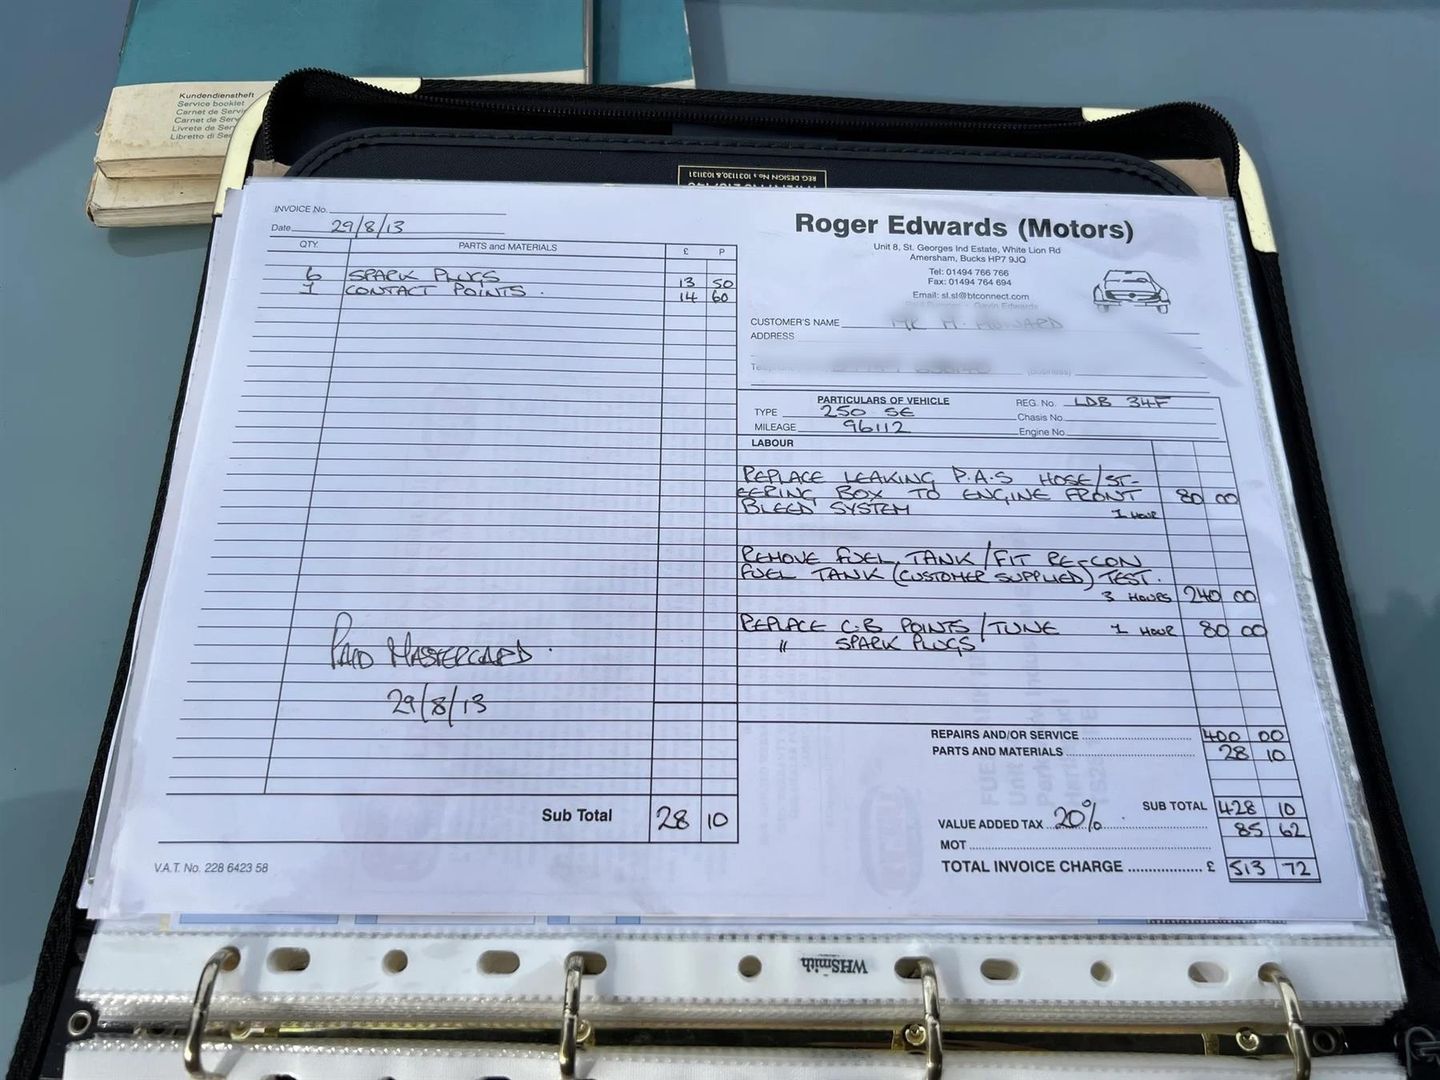 Kundendienstheft
Service booklet
Carnet de
Carnet de
Livrete de
Libretto di
REG DESIGN No.s 1031130,& 1031131
INVOICE No.
Date 29/8/13
QTY. PARTS and MATERIALS £ P
6 SPARK PLUGS 13 50
1 CONTACT POINTS . 14 60
PAID MASTERCARD .
29/8/13
Sub Total 28 10
V.A.T. No. 228 6423 58
Roger Edwards (Motors)
Unit 8, St. Georges Ind Estate, White Lion Rd
Amersham, Bucks HP7 9JQ
Tel: 01494 766 766
Fax: 01494 764 694
Email: sl.sl@btconnect.com
CUSTOMER'S NAME
ADDRESS
PARTICULARS OF VEHICLE
TYPE 250 SE
MILEAGE 96112
REG. No. LDB 34F
Chasis No.
Engine No.
LABOUR
REPLACE LEAKING P.A.S HOSE/ST-
EERING BOX TO ENGINE FRONT 80 00
BLEED SYSTEM 1 HOUR
REMOVE FUEL TANK/FIT RE-CON
FUEL TANK (CUSTOMER SUPPLIED) TEST.
3 HOURS 240 00
REPLACE C.B POINTS/TUNE 1 HOUR 80 00
" SPARK PLUGS
REPAIRS AND/OR SERVICE 400 00
PARTS AND MATERIALS 28 10
SUB TOTAL 428 10
VALUE ADDED TAX 20% 85 62
MOT
TOTAL INVOICE CHARGE £ 513 72
WHSmith